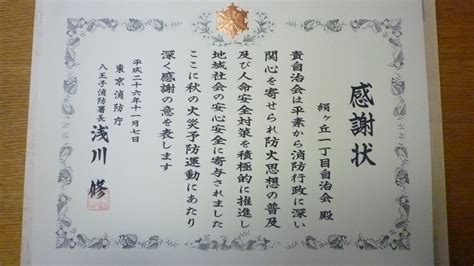 感謝状
絹ヶ丘一丁目自治会 殿
貴自治会は平素から消防行政に深い
関心を寄せられ防火思想の普及
及び人命安全対策を積極的に推進し
地域社会の安心安全に寄与されました
ここに秋の火災予防運動にあたり
深く感謝の意を表します
平成二十六年十一月七日
東京消防庁
八王子消防署長 浅川 修